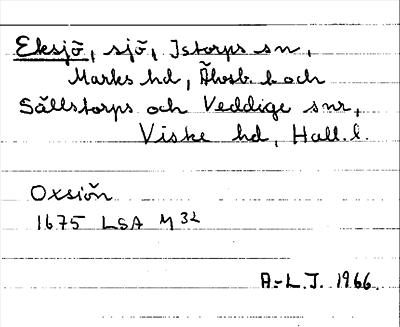 Eksjö, sjö, Istorps sn,
Marks hd, Älvsb. l. och
Sällstorps och Veddige snr,
Viske hd, Hall. l.
Oxsiön
1675 LSA M 32
A.-L. J. 1966.